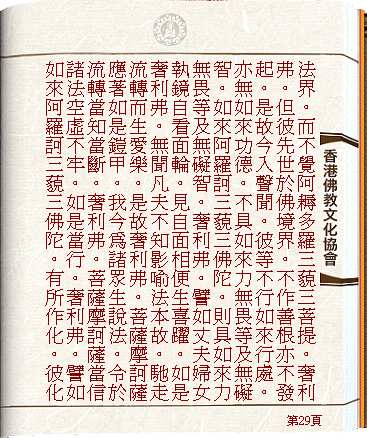 法界。而不覺阿耨多羅三藐三菩提。奢利
弗。但彼先世於佛境界。不作善根亦不發
起。是故今入聲聞。彼等不行如來行處。
亦無如來功德。不具如來力無畏等及無礙
智。如來阿羅訶三藐三佛陀。則具如來力
無畏等及無礙智。奢利弗。譬如丈夫婦女
執鏡自看面輪。見自面相便生喜躍。如是
奢利弗。無聞凡夫不知影喻法本故。馳走
流轉而生愛樂。是故奢利弗。菩薩摩訶薩
應著如是鎧甲。我今為諸眾生說法。令於
流轉當知當斷。奢利弗。菩薩摩訶薩當信
諸法空虛不牢。如是當行。奢利弗。譬如
如來阿羅訶三藐三佛陀。有所作化。彼化
香港佛教文化協會
第29頁